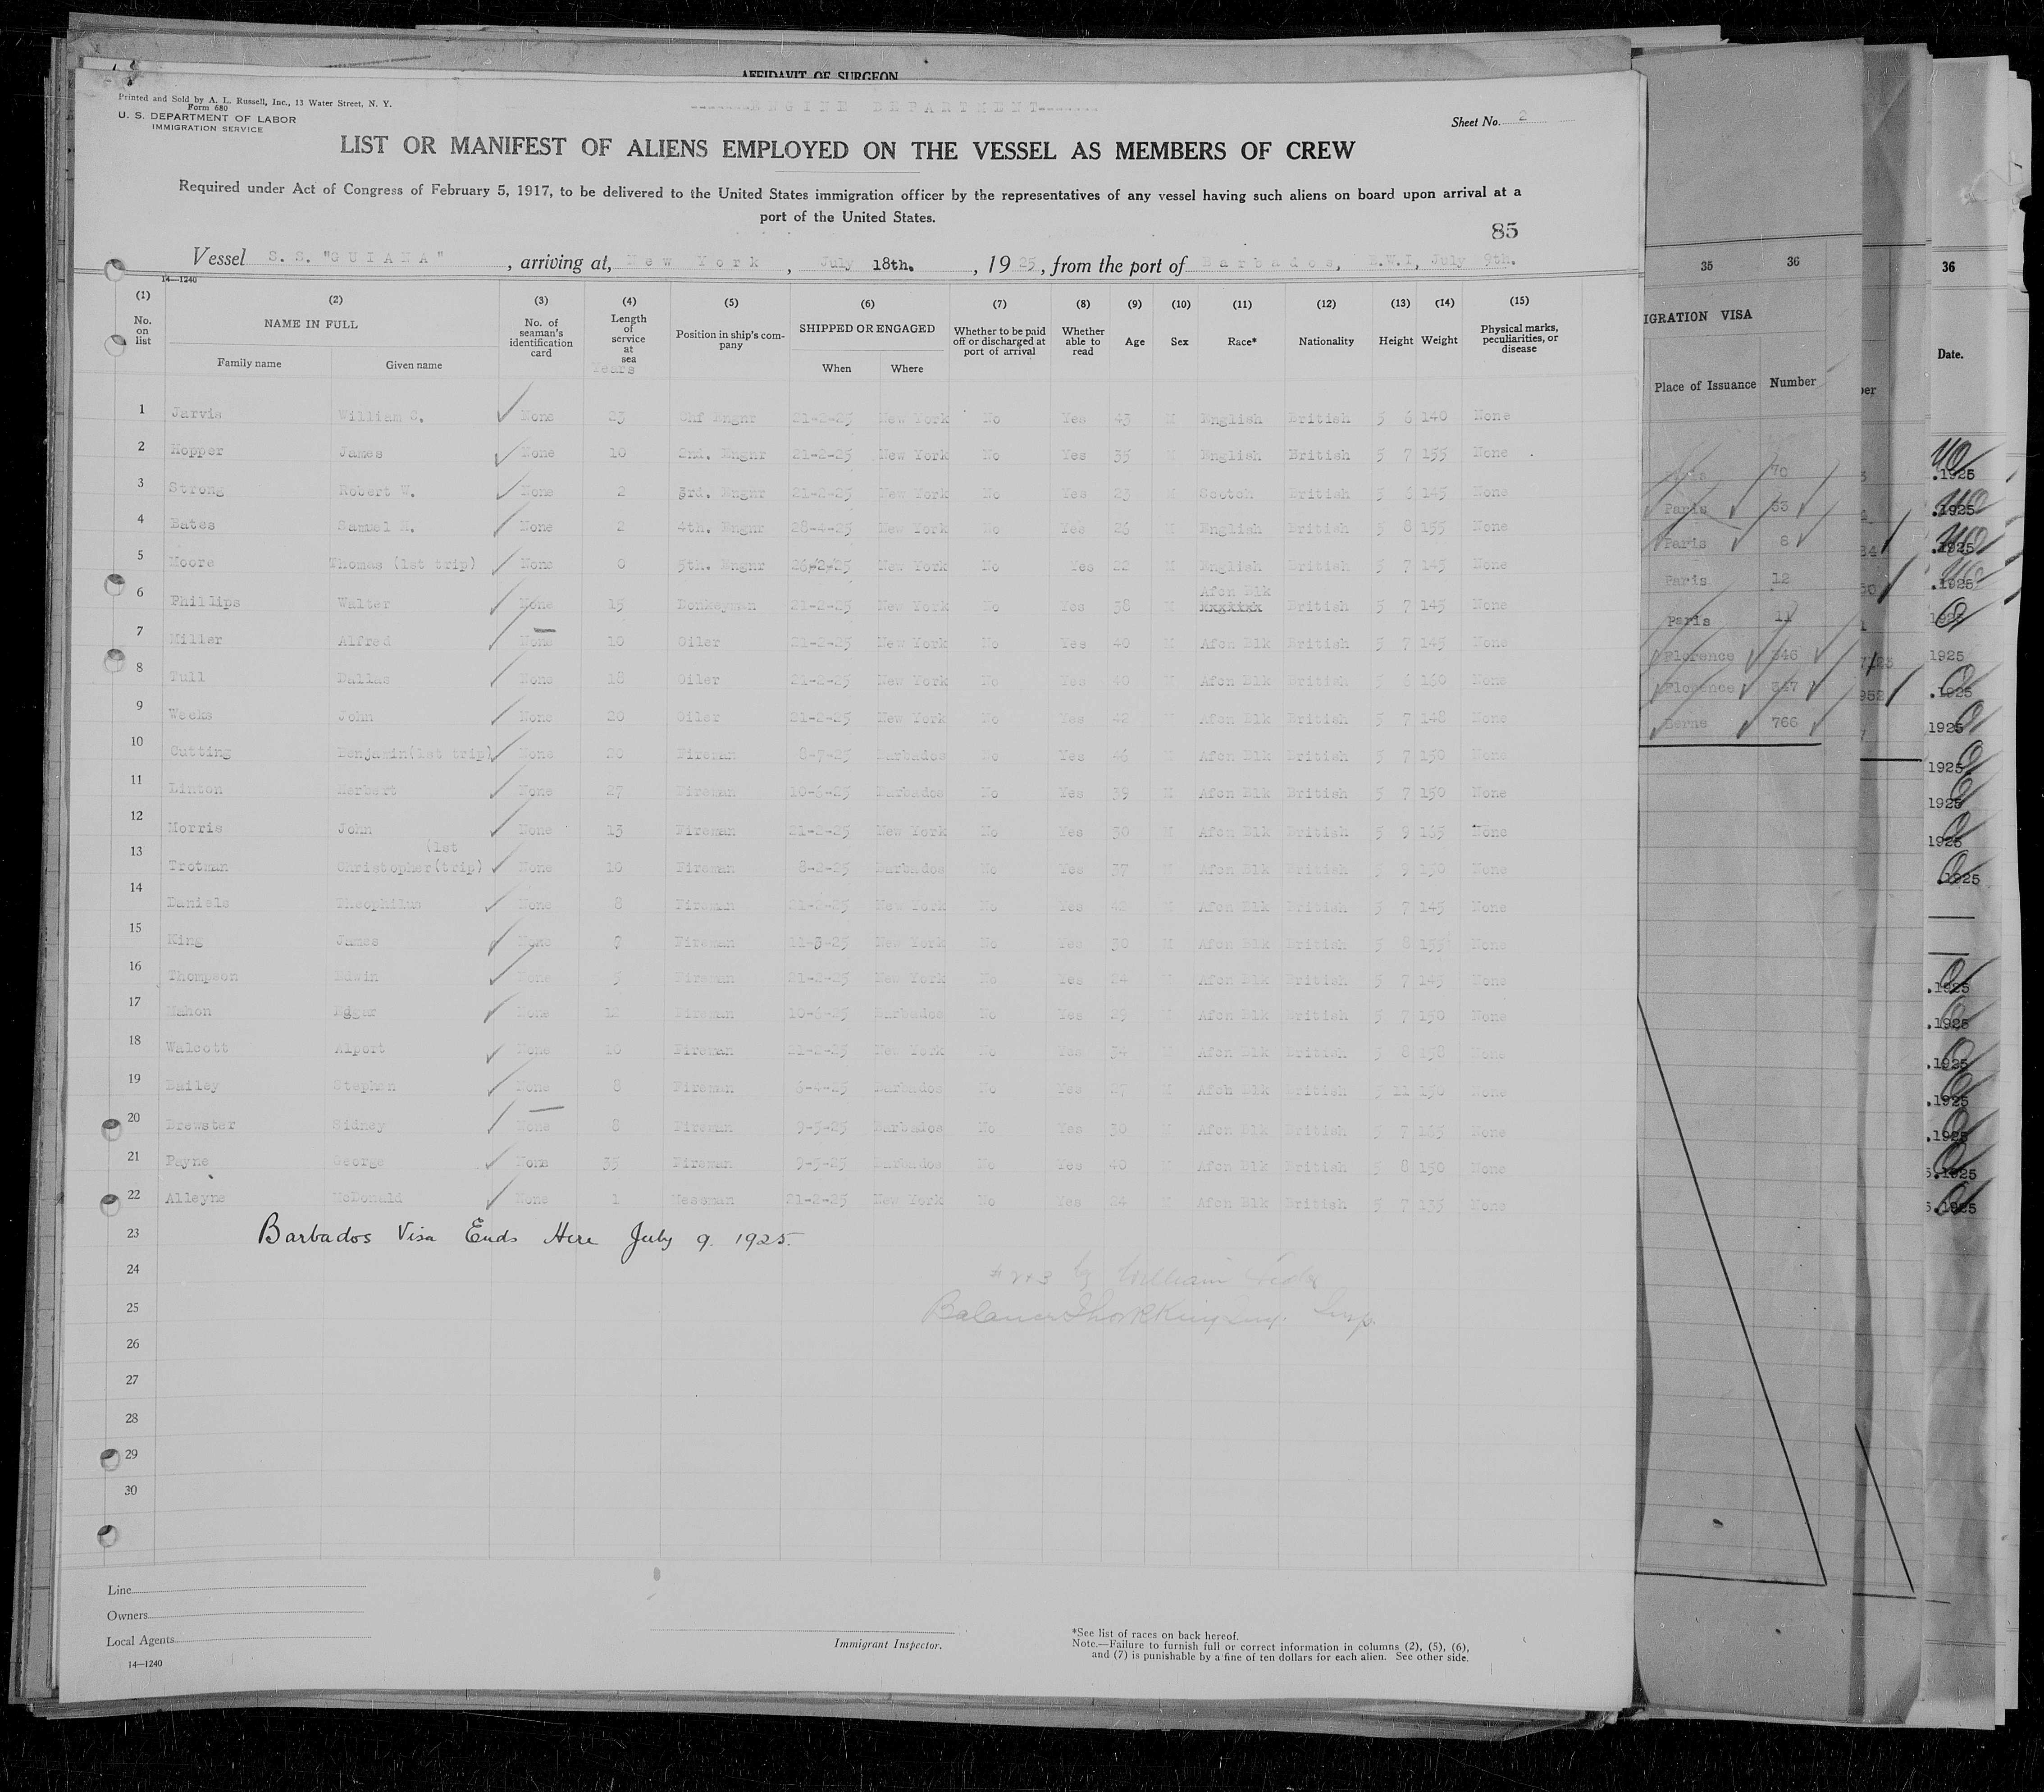 AFFIDAVIT OF SURGEON
Printed and Sold by A. L. Russell, Inc., 13 Water Street, N. Y.
Form 680
U. S. DEPARTMENT OF LABOR
IMMIGRATION SERVICE
ENGINE DEPARTMENT
Sheet No. 2
LIST OR MANIFEST OF ALIENS EMPLOYED ON THE VESSEL AS MEMBERS OF CREW
Required under Act of Congress of February 5, 1917, to be delivered to the United States immigration officer by the representatives of any vessel having such aliens on board upon arrival at a
port of the United States.
85
Vessel S. S. "GUIANA", arriving at, New York, July 18th., 1925, from the port of Barbados, B.W.I, July 9th.
14—1240
(1) (2) (3) (4) (5) (6) (7) (8) (9) (10) (11) (12) (13) (14) (15)
No. on list NAME IN FULL Family name Given name No. of seaman's identification card Length of service at sea Years Position in ship's company SHIPPED OR ENGAGED When Where Whether to be paid off or discharged at port of arrival Whether able to read Age Sex Race* Nationality Height Weight Physical marks, peculiarities, or disease
1 Jarvis William C. None 23 Chf Engnr 21-2-25 New York No Yes 43 M English British 5 6 140 None
2 Hopper James None 10 2nd. Engnr 21-2-25 New York No Yes 35 M English British 5 7 155 None
3 Strong Robert W. None 2 3rd. Engnr 21-2-25 New York No Yes 23 M Scotch British 5 6 145 None
4 Bates Samuel H. None 2 4th. Engnr 28-4-25 New York No Yes 26 M English British 5 8 155 None
5 Moore Thomas (1st trip) None 0 5th. Engnr 26-2-25 New York No Yes 22 M English British 5 7 145 None
Afcn Blk
6 Phillips Walter None 15 Donkeyman 21-2-25 New York No Yes 38 M British 5 7 145 None
7 Miller Alfred None 10 Oiler 21-2-25 New York No Yes 40 M Afcn Blk British 5 7 145 None
8 Tull Dallas None 18 Oiler 21-2-25 New York No Yes 40 M Afcn Blk British 5 6 160 None
9 Weeks John None 20 Oiler 21-2-25 New York No Yes 42 M Afcn Blk British 5 7 148 None
10 Cutting Benjamin(1st trip) None 20 Fireman 8-7-25 Barbados No Yes 46 M Afcn Blk British 5 7 150 None
11 Linton Herbert None 27 Fireman 10-6-25 Barbados No Yes 39 M Afcn Blk British 5 7 150 None
12 Morris John None 13 Fireman 21-2-25 New York No Yes 30 M Afcn Blk British 5 9 165 None
(1st
13 Trotman Christopher(trip) None 10 Fireman 8-2-25 Barbados No Yes 37 Afcn Blk British 5 9 150 None
14 Daniels Theophilus None 8 Fireman 21-2-25 New York No Yes 42 M Afcn Blk British 5 7 145 None
15 King James None Fireman 11-3-25 New York No Yes 30 M Afcn Blk British 5 8 155 None
16 Thompson Edwin None 5 Fireman 21-2-25 New York No Yes 24 M Afcn Blk British 5 7 145 None
17 Mahon Edgar None 12 Fireman 10-6-25 Barbados No Yes 29 M Afcn Blk British 5 7 150 None
18 Walcott Alport None 10 Fireman 21-2-25 New York No Yes 34 M Afcn Blk British 5 8 158 None
19 Bailey Stephen None 8 Fireman 6-4-25 Barbados No Yes 27 M Afcn Blk British 5 11 150 None
20 Brewster Sidney None 8 Fireman 9-5-25 Barbados No Yes 30 M Afcn Blk British 5 7 165 None
21 Payne George None 35 Fireman 9-5-25 Barbados No Yes 40 M Afcn Blk British 5 8 150 None
22 Alleyne McDonald None 1 Messman 21-2-25 New York No Yes 24 M Afcn Blk British 5 7 135 None
23 Barbados Visa Ends Here July 9. 1925.
24 by William
25 Balance Insp.
26
27
28
29
30
Line
Owners
Local Agents
14—1240
Immigrant Inspector.
*See list of races on back hereof.
Note.—Failure to furnish full or correct information in columns (2), (5), (6),
and (7) is punishable by a fine of ten dollars for each alien. See other side.
35 36
IGRATION VISA
Place of Issuance Number
Paris 70
Paris 55
Paris 8
Paris 12
Paris 11
Florence 346
Florence 347
Berne 766
36
Date.
.1925
.1925
.1925
.1925
1925
1925
.1925
1925
1925
1925
1925
.1925
.1925
.1925
.1925
.1925
.1925
5.1925
5.1925